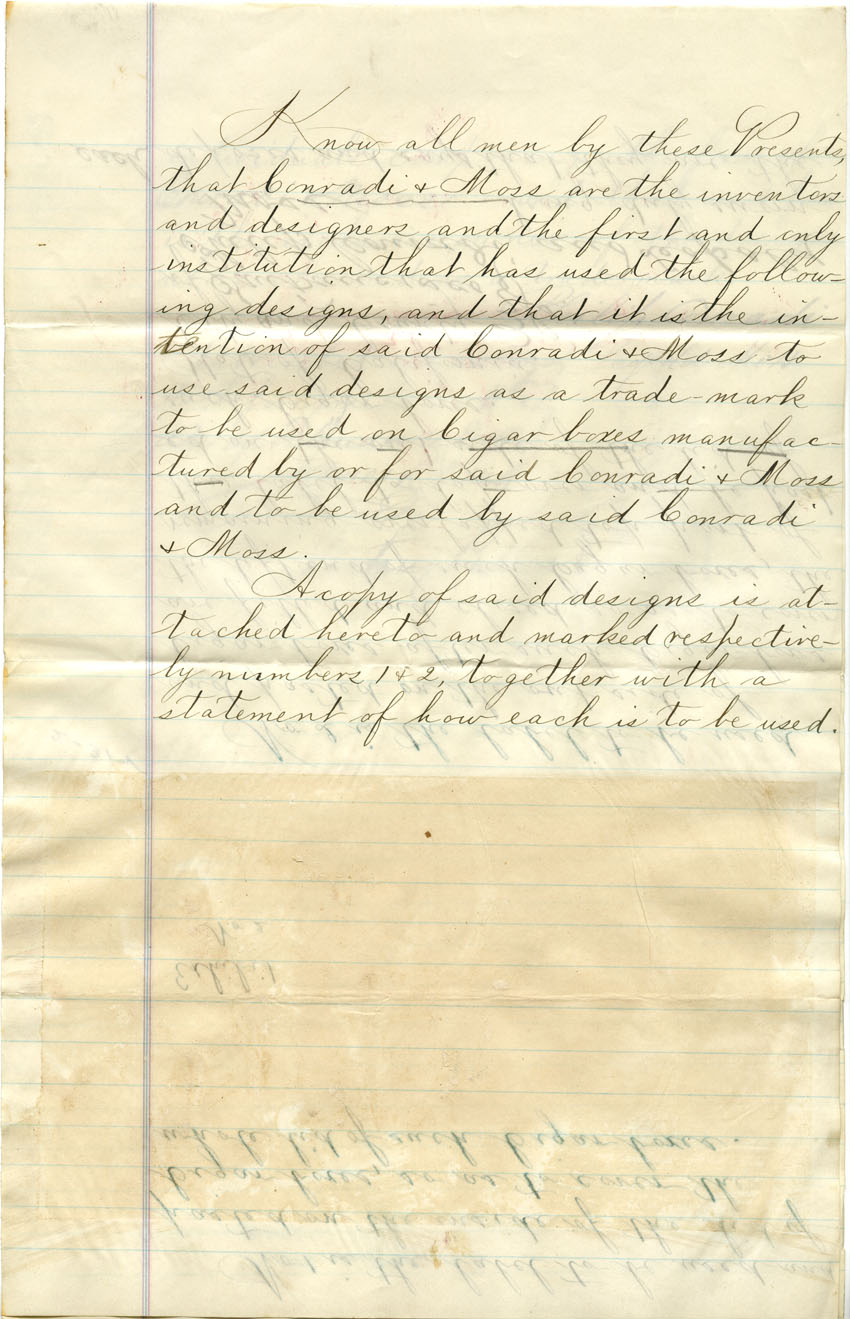 Know all men by these Presents,
that Conradi & Moss are the inventors
and designers and the first and only
institution that has used the follow-
ing designs, and that it is the in-
tention of said Conradi & Moss to
use said designs as a trade-mark
to be used on Cigar boxes manufac-
tured by or for said Conradi & Moss
and to be used by said Conradi
& Moss.
A copy of said designs is at-
tached hereto and marked respective-
ly numbers 1 & 2, together with a
statement of how each is to be used.